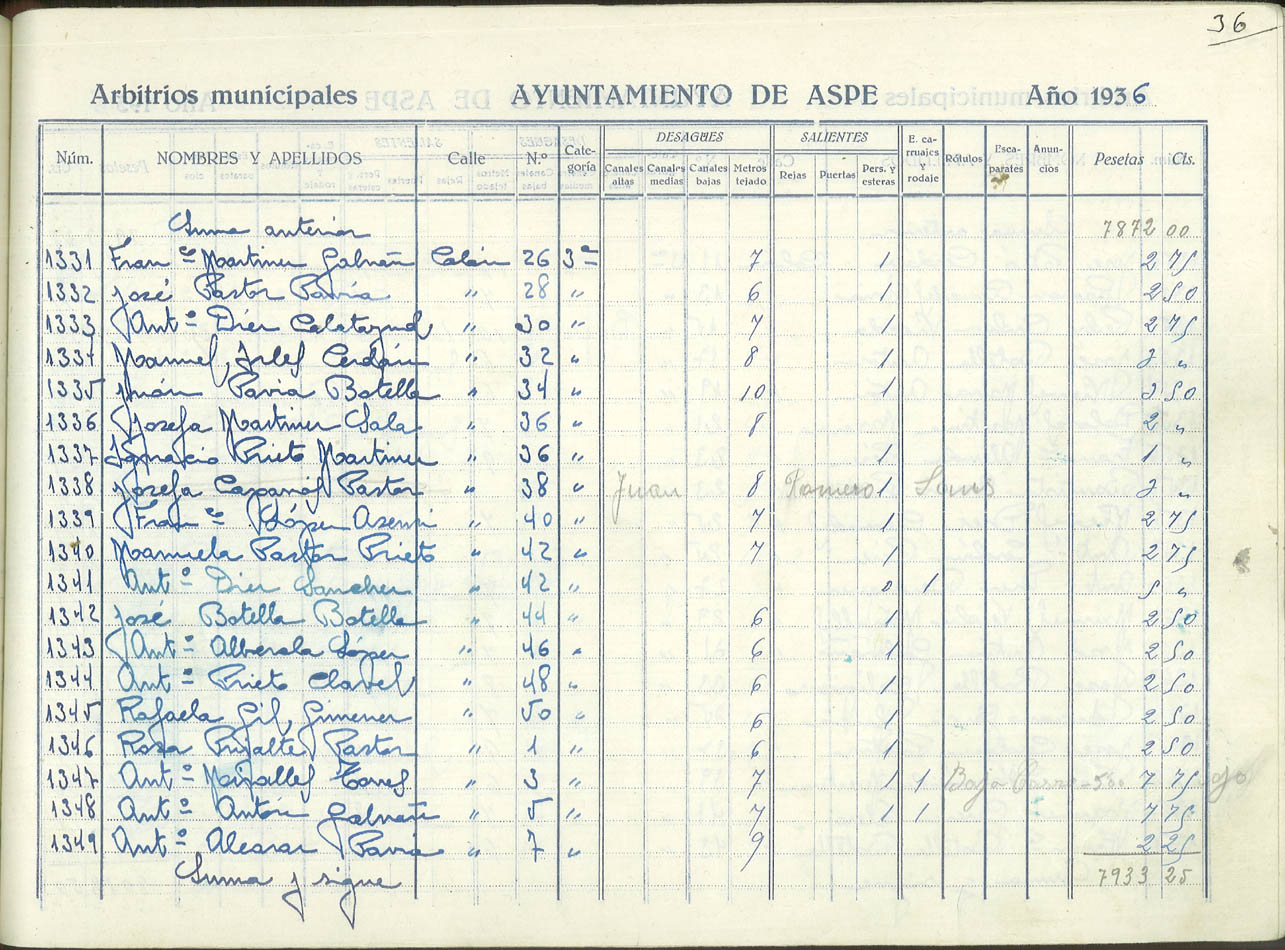 36
Arbitrios municipales AYUNTAMIENTO DE ASPE Año 1936
Núm. NOMBRES Y APELLIDOS Calle N.º Cate-goría DESAGUES Canales altas Canales medias Canales bajas Metros tejado SALIENTES Rejas Puertas Pers. y esteras E. ca-rruajes y rodaje Rótulos Esca-parates Anun-cios Pesetas Cts.
Suma anterior 7872 00
1331 Fran co Martinez Galvañ Colón 26 3ª 7 1 2 75
1332 José Pastor Pavía " 28 " 6 1 2 50
1333 Antº Diez Calatayud " 30 " 7 1 2 75
1334 Manuel Cerdán " 32 " 8 1 3 "
1335 Juán Pavia Botella " 34 " 10 1 3 50
1336 Josefa Martinez Sala " 36 " 8 2 "
1337 Ignacio Prieto Martinez " 36 " 1 1 "
1338 Josefa Caparrós Pastor " 38 " Juan 8 Romero 1 Sans 3 "
1339 Fran co López Asensi " 40 " 7 1 2 75
1340 Manuela Pastor Prieto " 42 " 7 1 2 75
1341 Antº Diez Sanchez " 42 " 0 1 5 "
1342 José Botella Botella " 44 " 6 1 2 50
1343 Antº Alberola López " 46 " 6 1 2 50
1344 Antº Prieto Clavel " 48 " 6 1 2 50
1345 Rafaela Gil Gimenez " 50 " 6 1 2 50
1346 Rosa Pujalte Pastor " 1 " 6 1 2 50
1347 Antº Mirallez Torres " 3 " 7 1 1 Baja Carro-500 7 75 ojo
1348 Antº Antón Galvañ " 5 " 7 1 1 7 75
1349 Antº Alcaraz Pavía " 7 " 9 2 25
Suma y sigue 7933 25